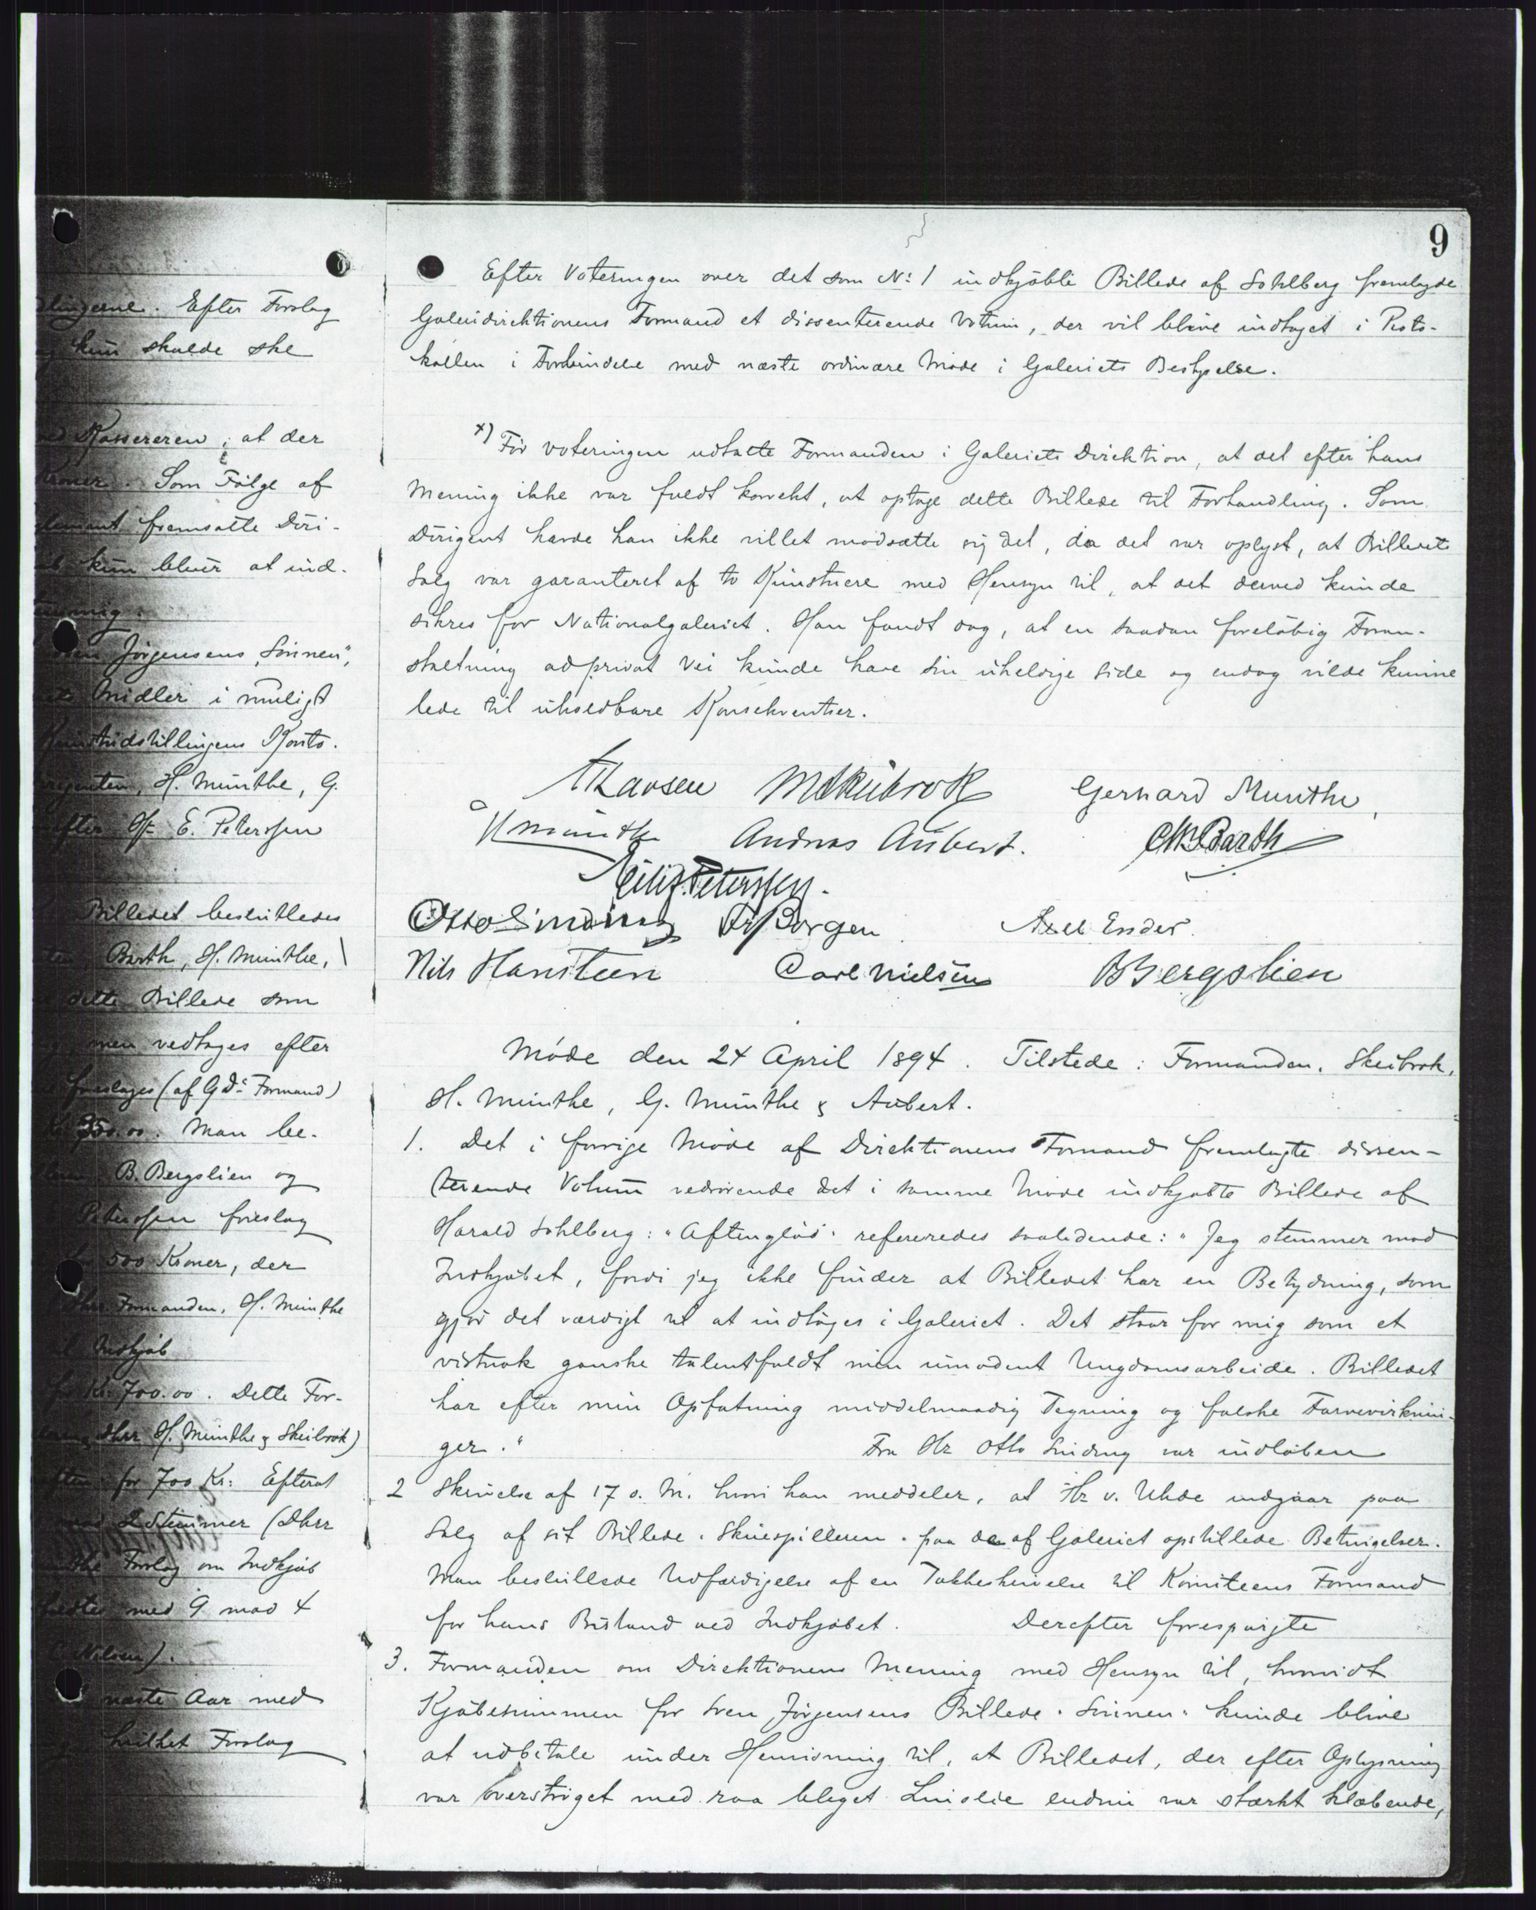 9
dlingerne. Efter Forslag
kun skulde ske
ved Kassereren, at der
Kroner. Som Følge af
fremsatte Diri-
kun bliver at ind-
Jørgensens "Sønnen",
Midler i muligt
Kunstudstillingens Konto.
Dirigenten, H. Munthe, G.
efter Hr E. Peterssen
Billedet besluttedes
Barth, H. Munthe,
dette Billede som
men vedtages efter
foreslages (af G.D.s Formand)
350.00. Man be-
B. Bergslien og
Peterssen foreslag
500 Kroner, der
Dhrr Formanden, H. Munthe
til Indkjøb
Kr. 700.00. Dette For-
Dhrr H. Munthe & Skeibrok)
for 700 Kr: Efterat
mod 2 Stemmer (Dhrr
Forslag om Indkjøb
med 9 mod 4
C. Nilsen).
næste Aar med
hvilket Forslag
Efter Voteringen over det som No 1 indkjøbte Billede af Sohlberg fremlagde
Galleridirektionens Formand et dissenterende Votum, der vil blive indtaget i Proto-
kollen i Forbindelse med næste ordinære Møde i Galeriets Bestyrelse.
x) Før voteringen udtalte Formanden i Galeriets Direktion, at det efter hans
Mening ikke var fuldt korrekt, at optage dette Billede til Forhandling. Som
Dirigent havde han ikke villet modsætte sig det, da det var oplyst, at Billedets
Salg var garanteret af to Kunstnere med Hensyn til, at det derved kunde
sikres for Nationalgaleriet. Han fandt dog, at en saadan foreløbig Foran-
staltning ad privat Vei kunde have sin uheldige Side og endog vilde kunne
lede til uhedbare Konsekventser.
MSkeibrok Gerhard Munthe,
HMunthe Andreas Aubert. CWBarth
Eilif Peterssen.
Otto Sinding Fr Borgen Axel Ender.
Nils Hansteen Carl Nielsen BBergslien
Møde den 24 April 1894. Tilstede: Formanden, Skeibrok,
H. Munthe, G. Munthe & Aubert.
1. Det i forrige Møde af Direktionens Formand fremlagte dissen-
terende Votum vedrørende det i samme Møde indkjøbte Billede af
Harald Sohlberg: "Aftenglød" refereredes saalydende: "Jeg stemmer mod
Indkjøbet, fordi jeg ikke finder at Billedet har en Betydning, som
gjør det værdigt til at indtages i Galeriet. Det staar for mig som et
vistnok ganske talentfuldt men umodent Ungdomsarbeide. Billedet
har efter min Opfatning middelmaadig Tegning og falske Farvevirknin-
ger." Fra Hr Otto Sinding var indløben
2 Skrivelse af 17 d. M. hvori han meddeler, at Hr v. Uhde indgaar paa
Salg af sit Billede "Skuespilleren" paa de af Galeriet opstillede Betingelser.
Man besluttede Udfærdigelse af en Takkeskrivelse til Komiteens Formand
for hans Bistand ved Indkjøbet. Derefter forespurgte
3. Formanden om Direktionens Mening med Hensyn til, hvorvidt
Kjøbesummen for Sven Jørgensens Billede "Sønnen" kunde blive
at udbetale under Henvisning til, at Billedet, der efter Oplysning
var overstrøget med raa bleget Linolie endnu var stærkt klæbende,